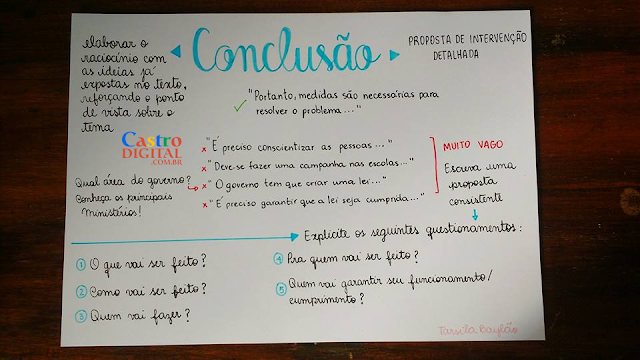 elaborar o
raciocínio com
as ideias já
expostas no texto,
reforçando o ponto
de vista sobre o
tema
Conclusão
PROPOSTA DE INTERVENÇÃO
DETALHADA
"Portanto, medidas são necessárias para
resolver o problema..."
Castro
DIGITAL
.COM.BR
x "É preciso conscientizar as pessoas..."
x "Deve-se fazer uma campanha nas escolas..."
x "O governo tem que criar uma lei..."
x "É preciso garantir que a lei seja cumprida..."
MUITO VAGO
Escreva uma
proposta
consistente
Qual área do governo?
Conheça os principais
Ministérios!
Explicite os seguintes questionamentos:
1 O que vai ser feito?
2 Como vai ser feito?
3 Quem vai fazer?
4 Pra quem vai ser feito?
5 Quem vai garantir seu funcionamento/
cumprimento?